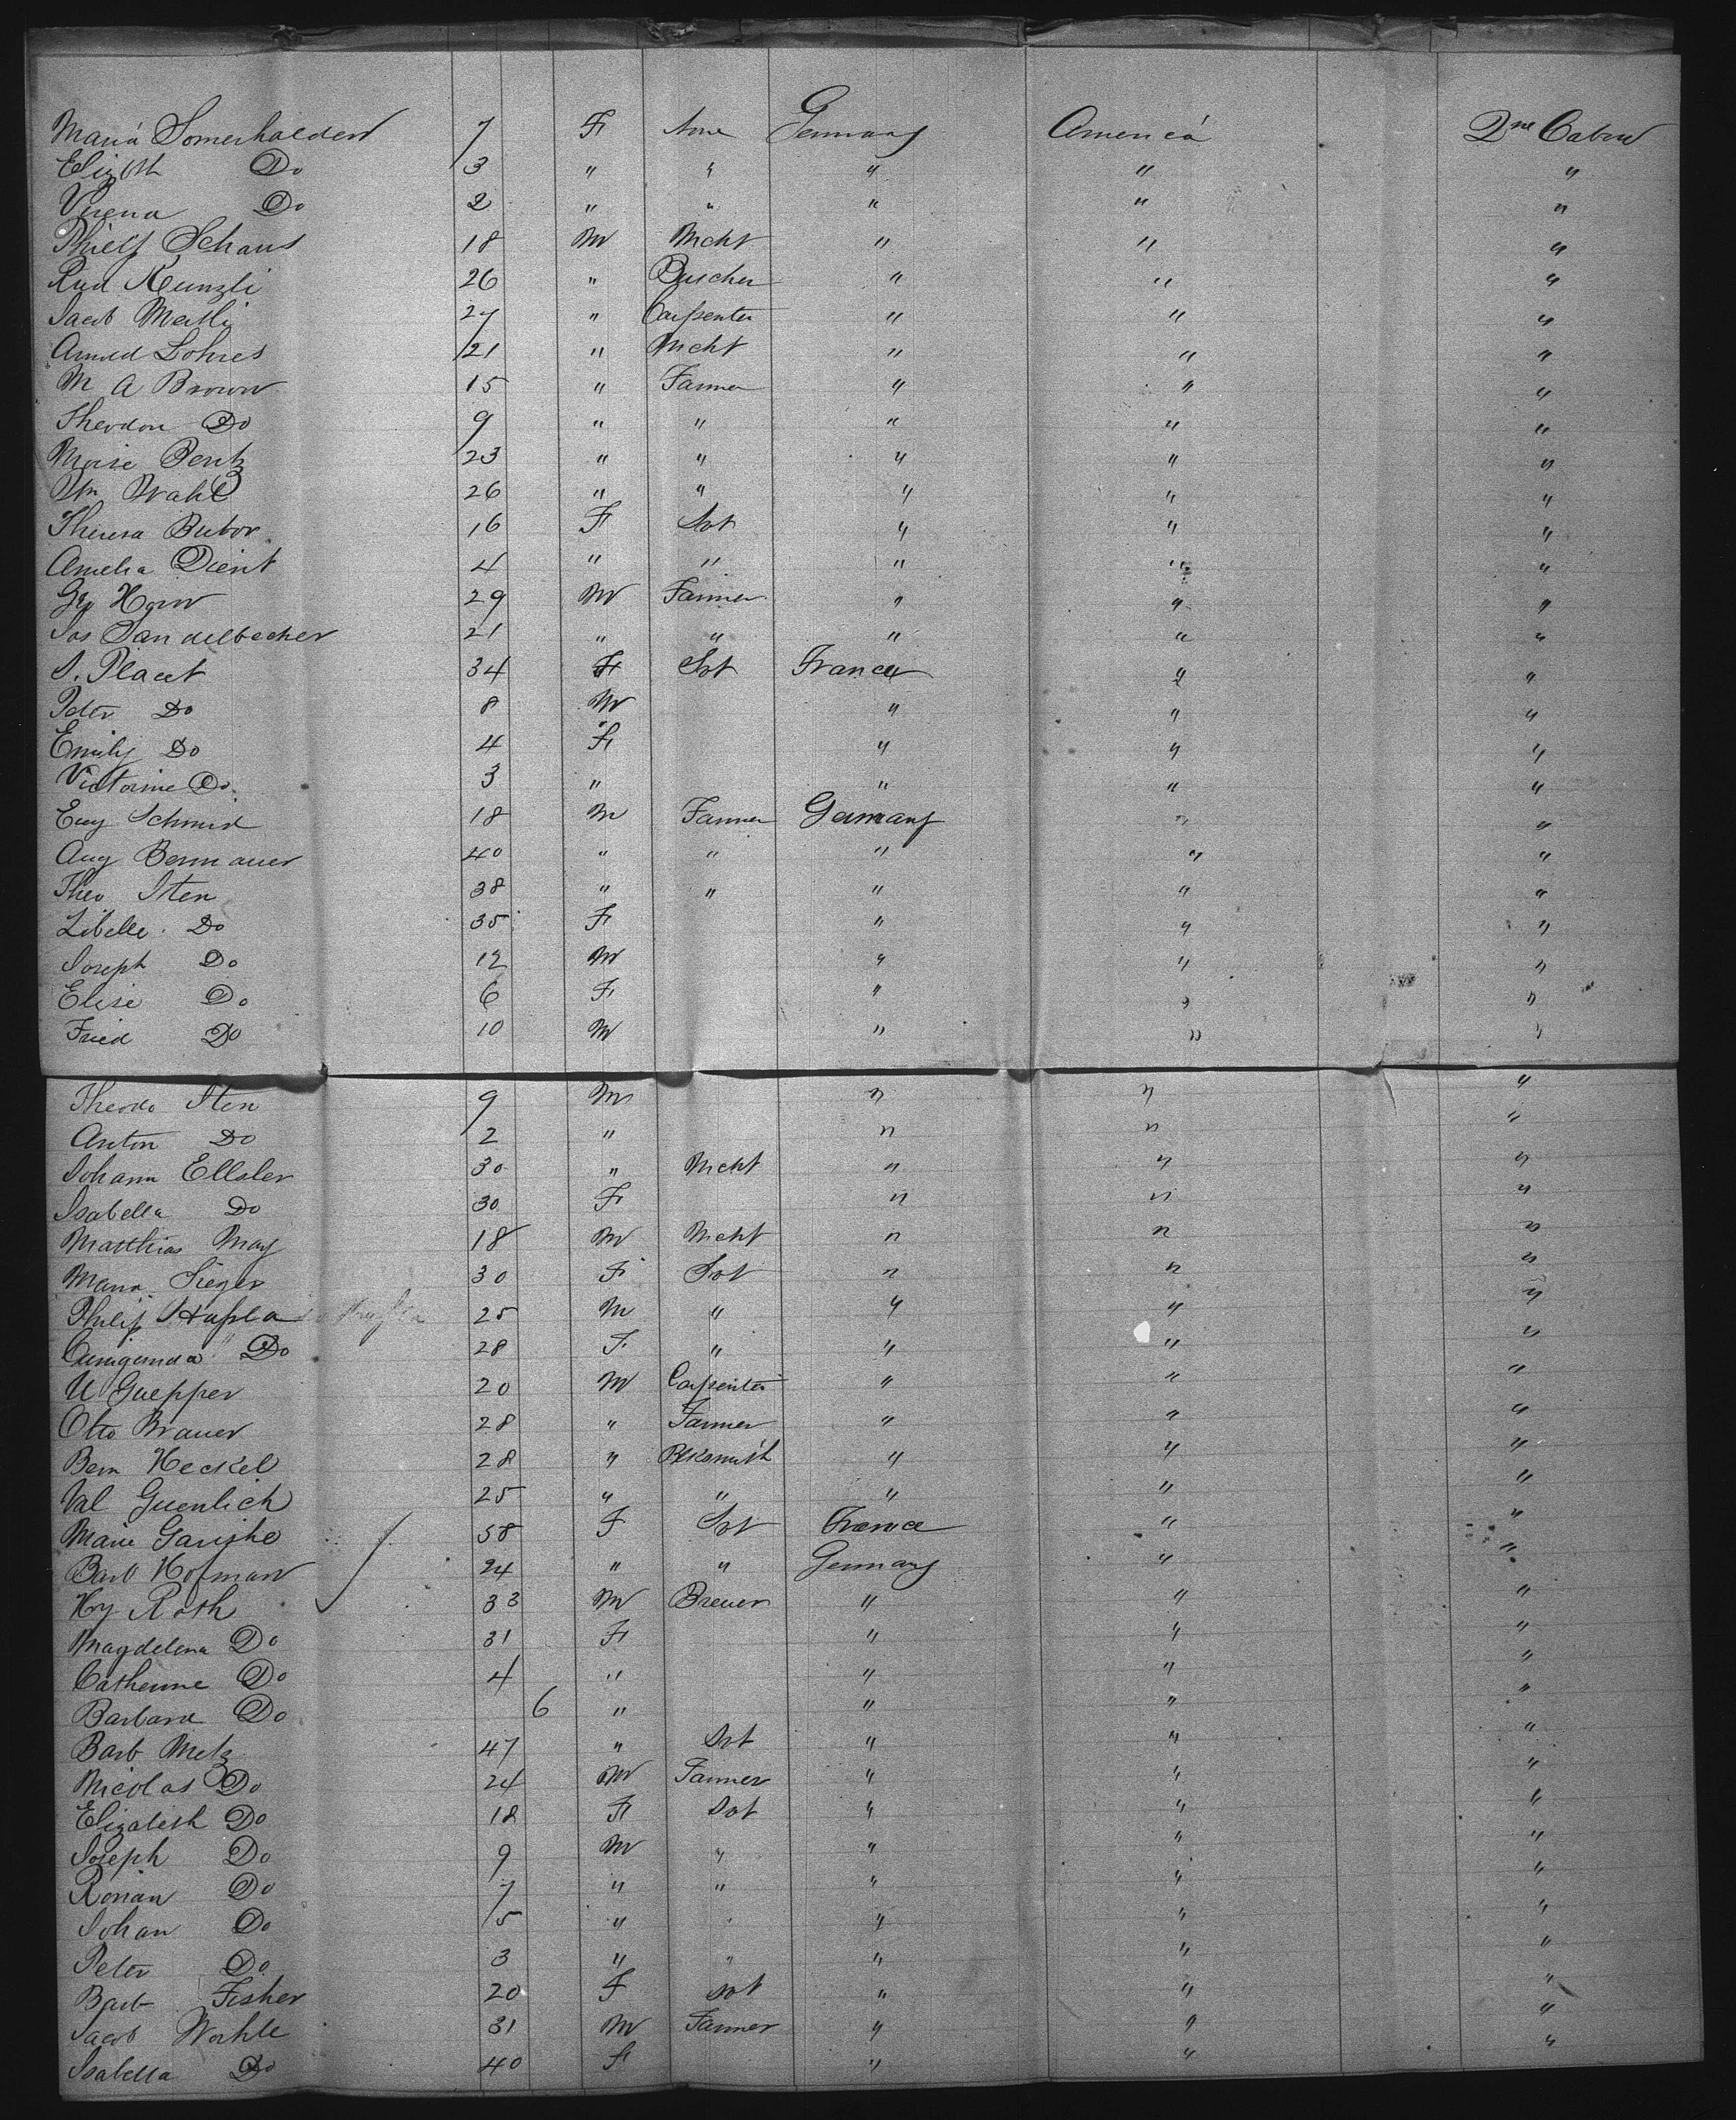 Maria Somerhalder 7 F None Germany America 2nd Cabin
Elizbth Do 3 " " " " "
Verena Do 2 " " " " "
Schaus 18 M Mcht " " "
Rud Kunzli 26 " Buscher " " "
Jacob Meitli 27 " Carpenter " " "
Arnold Lohres 21 " Mcht " " "
M A Brown 15 " Farmer " " "
Theodor Do 9 " " " " "
Moise Bentz 23 " " " " "
Wahl 26 " " " " "
Theresa Bubor 16 F Svt " " "
Amelia Dient 4 " " " " "
Geo Horn 29 M Farmer " " "
Jos Sandelbacher 21 " " " " "
S. Placet 34 F Svt France " "
Peter Do 8 M " " "
Emily Do 4 F " " "
Victorine Do 3 " " " "
Eug Schmid 18 M Farmer Germany " "
Aug Bermauer 40 " " " " "
Theo Iten 38 " " " " "
Libelle Do 35 F " " "
Joseph Do 12 M " " "
Elise Do 6 F " " "
Fried Do 10 M " " "
Theodo Iten 9 M " " "
Anton Do 2 " " " "
Johann Ellsler 30 " Mcht " " "
Isabella Do 30 F " " "
Matthias May 18 M Mcht " " "
Maria Sieger 30 F Svt " " "
Philip Hupla 25 M " " " "
Cunigunda Do 28 F " " " "
U Guepper 20 M Carpenter " " "
Otto Brauer 28 " Farmer " " "
Bern Heckel 28 " Blksmith " " "
Val Guenlich 25 " " " " "
Marie 58 F Svt France " "
Barb Hofman 24 " " Germany " "
Hy Roth 33 M Brewer " " "
Magdelena Do 31 F " " "
Catherine Do 4 " " " "
Barbara Do 6 " " " "
Barb Metz 47 " Svt " " "
Nicolas Do 24 M Farmer " " "
Elizabeth Do 18 F Svt " " "
Joseph Do 9 M " " " "
Roman Do 7 " " " " "
Johan Do 5 " " " " "
Peter Do 3 " " " " "
Barb Fisher 20 F Svt " " "
Jacob Workle 31 M Farmer " " "
Isabella Do 40 F " " "